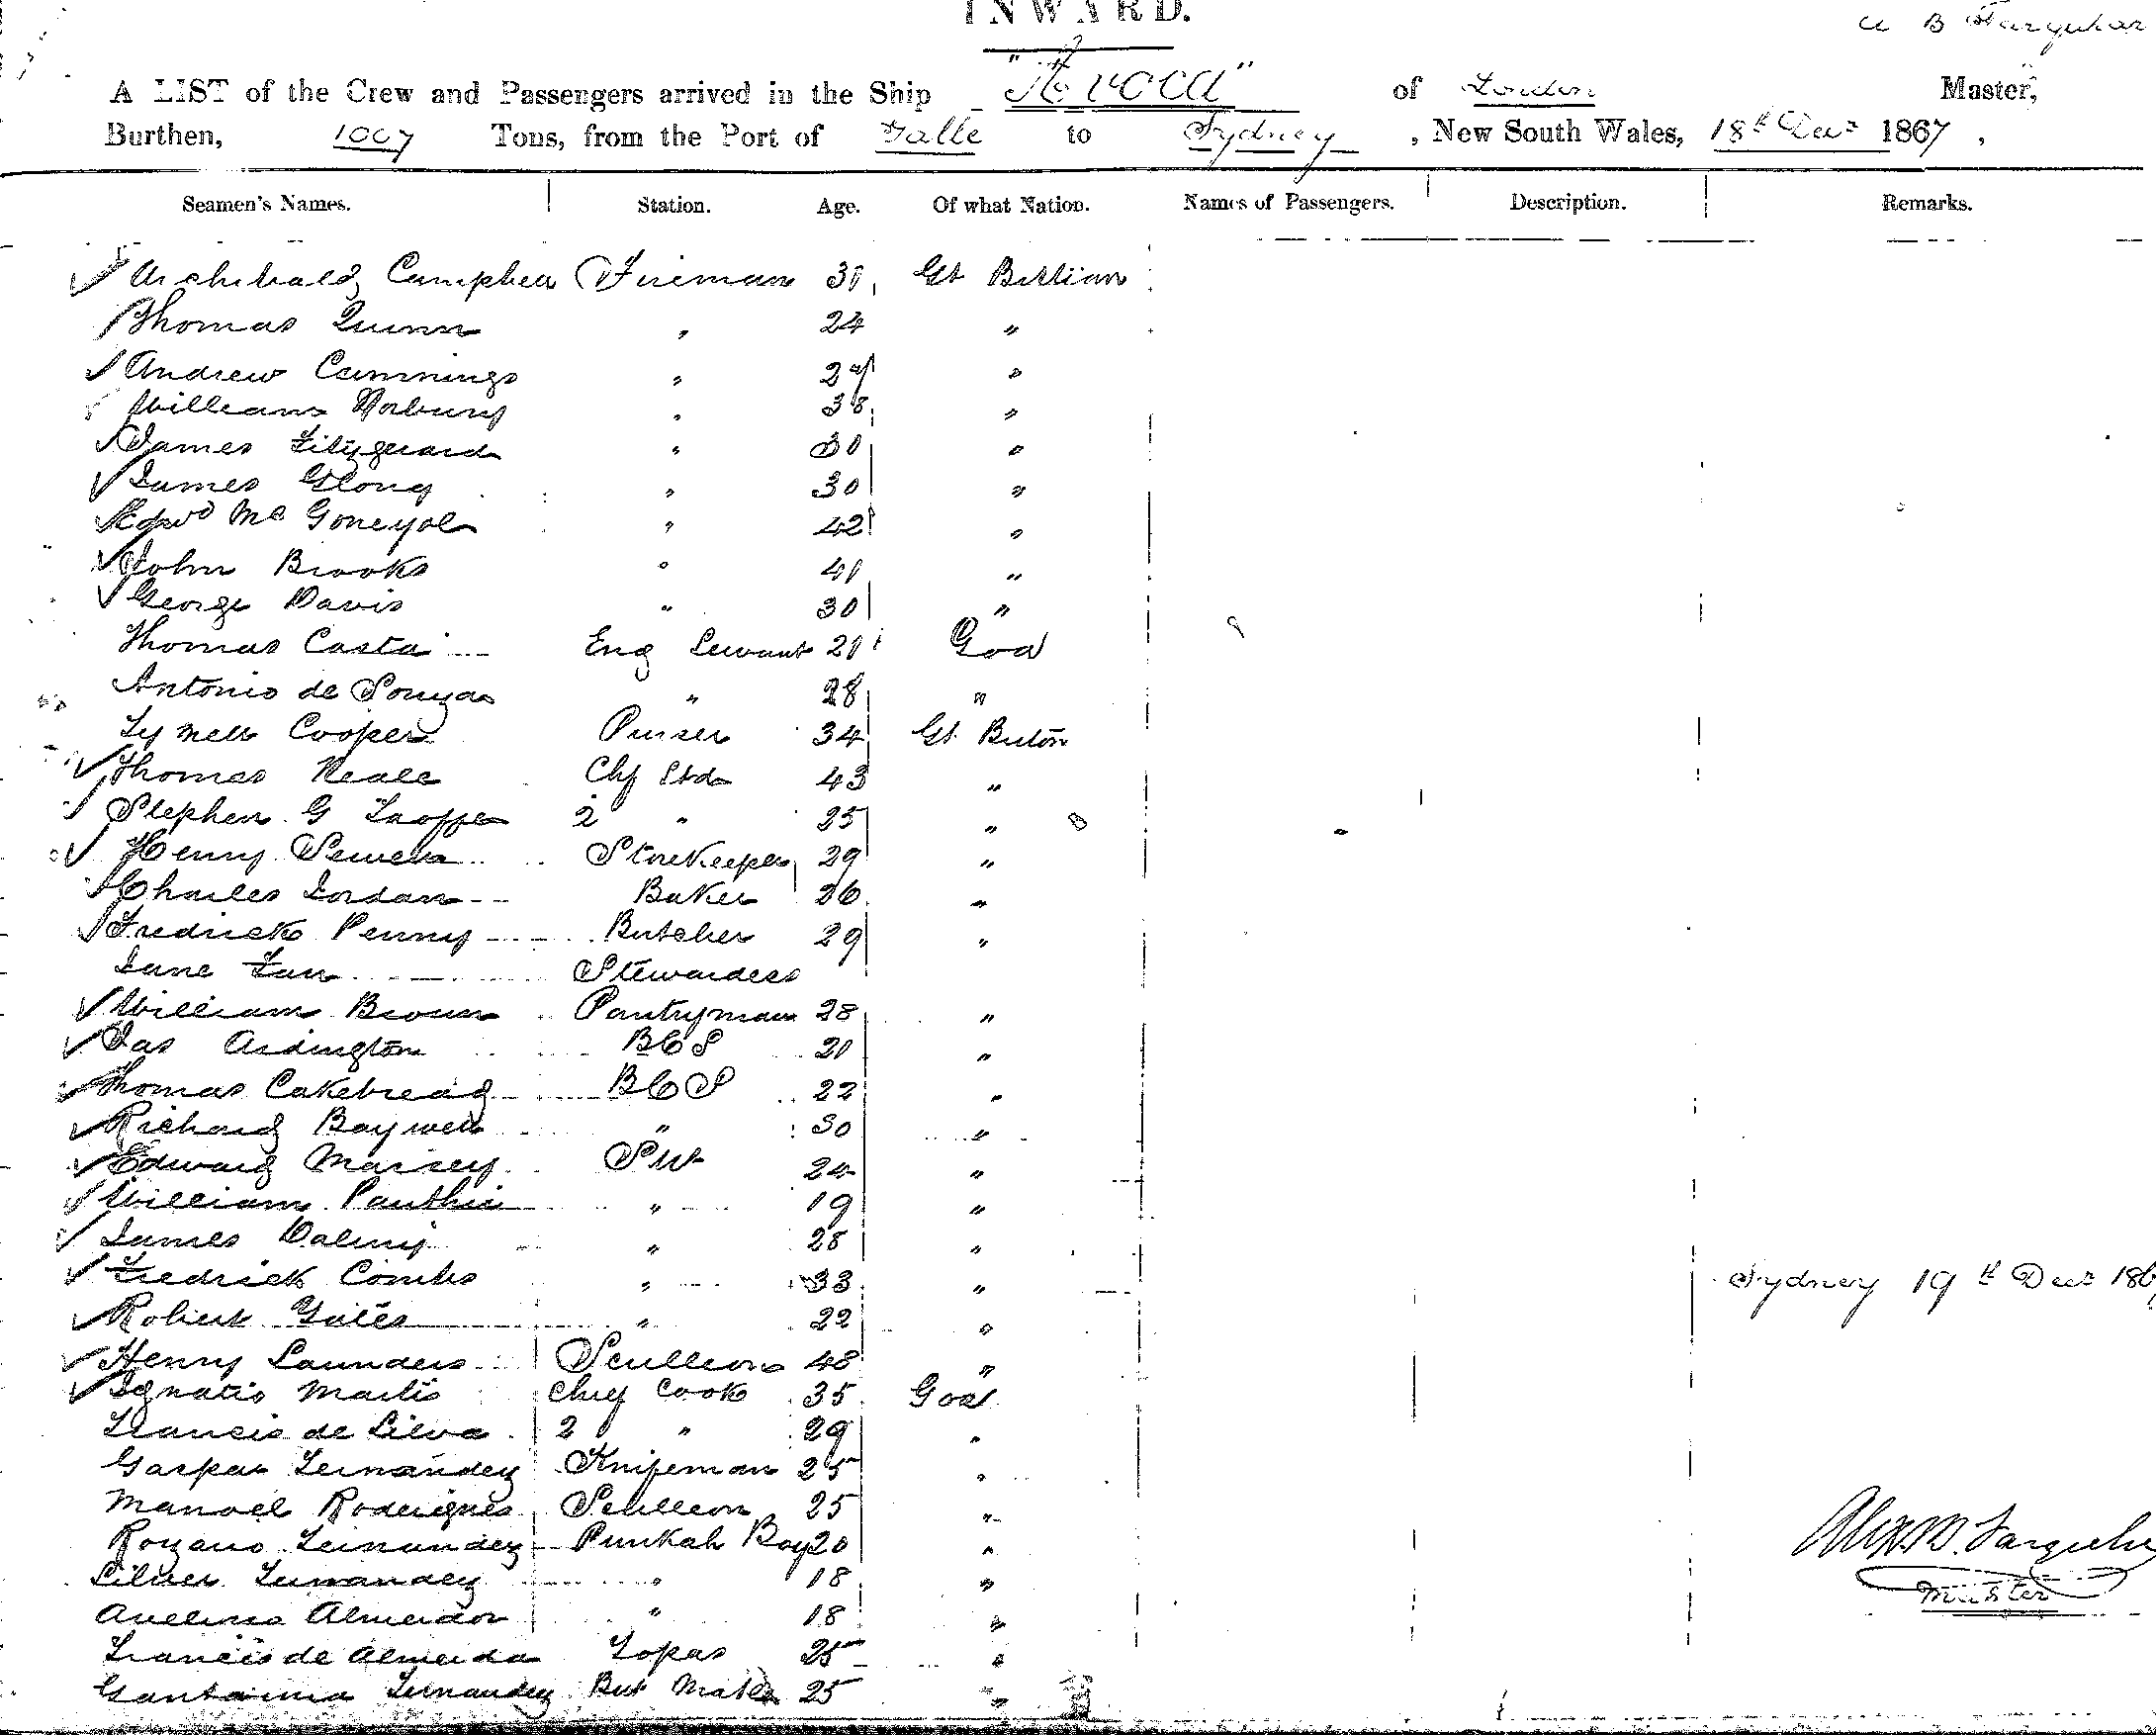 INWARD.
A B Farquhar
A LIST of the Crew and Passengers arrived in the Ship "Avoca" of London Master,
Burthen, 1007 Tons, from the Port of Galle to Sydney, New South Wales, 18th Decr 1867,
Seamen's Names. Station. Age. Of what Nation. Names of Passengers. Description. Remarks.
Archibald Campbell Fireman 30 Gt Brittian
Thomas Quinn " 24 "
Andrew Cummings " 29 "
William Norbury " 38 "
James Fitzgerard " 30 "
James Glong " 30 "
Edwd Mc Goneyol " 42 "
John Brooks " 41 "
George Davis " 30 "
Thomas Casta Eng Servant 21 Goa
Antonio de Souza " 28 "
Cooper Purser 34 Gt Briton
Thomas Neale Chf Std 43 "
Stephen G 2 " 25 "
Henry Storekeeper 29 "
Charles Jordan Baker 26 "
Fredrick Penny Butcher 29 "
Jane Stewardess
William Brown Pantryman 28 "
Jas Ardington BCS 20 "
Thomas Cakebread BCS 22 "
Richard Baywell " 30 "
Edward Massey SW 24 "
William " 19 "
James " 28 "
Fredrick Combs " 33 "
Sydney 19th Decr 186
Robert Gates " 22 "
Henry Saunders Scullion 48 "
Ignatio Martis Chief Cook 35 Goa
Francis de Silva 2 " 29 "
Gaspar Fernandez Knifeman 25 "
Manoel Roderigues Scullion 25 "
Rozario Fernandez Punkah Boy 20 "
Silver Fernandez " 18 "
Avelino Almeida " 18 "
Francis de Almeida Topas 25 "
Fernandez But Mate 25 "
Alex B. Farquhar
Master